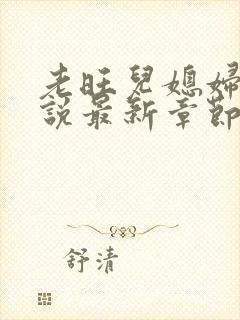 老旺兒媳婦
說最新章節
舒清